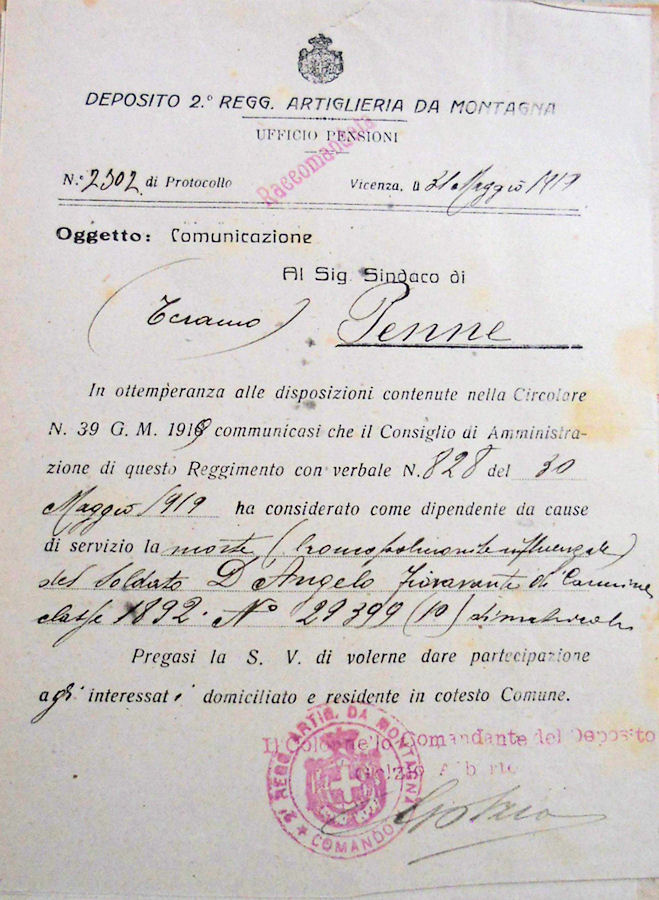 DEPOSITO 2.° REGG. ARTIGLIERIA DA MONTAGNA
UFFICIO PENSIONI
Raccomandata
N.° 2302 di Protocollo
Vicenza, li 31 Maggio 1919
Oggetto: Comunicazione
Al Sig. Sindaco di
(Teramo) Penne
In ottemperanza alle disposizioni contenute nella Circolare
N. 39 G. M. 1919 communicasi che il Consiglio di Amministra-
zione di questo Reggimento con verbale N. 828 del 30
Maggio 1919 ha considerato come dipendente da cause
di servizio la morte (broncopolmonite influenzale)
del soldato D'Angelo Fioravante di Carmine
classe 1892. N° 29399 (10) di matricola
Pregasi la S. V. di volerne dare partecipazione
agli interessati domiciliato e residente in cotesto Comune.
Il Colonnello Comandante del Deposito
Alberto
2° REGG. ARTIG. DA MONTAGNA
COMANDO